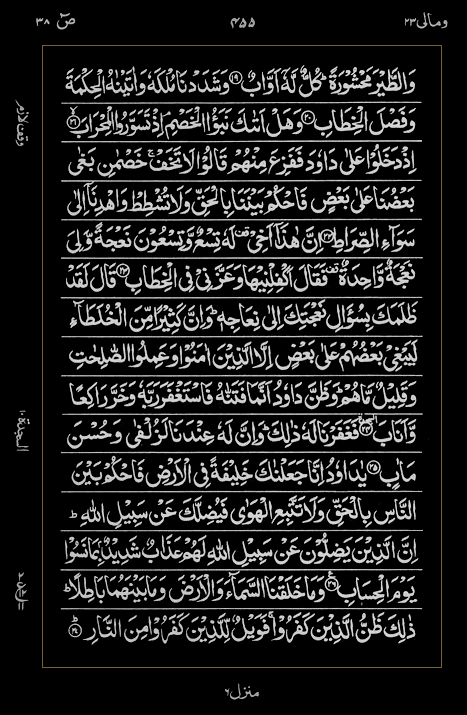 ومالی ۲۳ ۴۵۵ صٓ ۳۸
وَالطَّيْرَ مَحْشُوْرَةً ؕ كُلٌّ لَّهٗۤ اَوَّابٌ ۝۱۹ وَشَدَدْنَا مُلْكَهٗ وَاٰتَيْنٰهُ الْحِكْمَةَ
وَفَصْلَ الْخِطَابِ ۝۲۰ وَهَلْ اَتٰىكَ نَبَؤُا الْخَصْمِ ۘ اِذْ تَسَوَّرُوا الْمِحْرَابَ ۝۲۱
اِذْ دَخَلُوْا عَلٰى دَاوٗدَ فَفَزِعَ مِنْهُمْ قَالُوْا لَا تَخَفْ ۚ خَصْمٰنِ بَغٰى
بَعْضُنَا عَلٰى بَعْضٍ فَاحْكُمْ بَيْنَنَا بِالْحَقِّ وَلَا تُشْطِطْ وَاهْدِنَاۤ اِلٰى
سَوَآءِ الصِّرَاطِ ۝۲۲ اِنَّ هٰذَاۤ اَخِيْ ۫ لَهٗ تِسْعٌ وَّتِسْعُوْنَ نَعْجَةً وَّلِيَ
نَعْجَةٌ وَّاحِدَةٌ ۫ فَقَالَ اَكْفِلْنِيْهَا وَعَزَّنِيْ فِى الْخِطَابِ ۝۲۳ قَالَ لَقَدْ
ظَلَمَكَ بِسُؤَالِ نَعْجَتِكَ اِلٰى نِعَاجِهٖ ؕ وَاِنَّ كَثِيْرًا مِّنَ الْخُلَطَآءِ
لَيَبْغِيْ بَعْضُهُمْ عَلٰى بَعْضٍ اِلَّا الَّذِيْنَ اٰمَنُوْا وَعَمِلُوا الصّٰلِحٰتِ
وَقَلِيْلٌ مَّا هُمْ ؕ وَظَنَّ دَاوٗدُ اَنَّمَا فَتَنّٰهُ فَاسْتَغْفَرَ رَبَّهٗ وَخَرَّ رَاكِعًا
وَّاَنَابَ ۝۲۴ فَغَفَرْنَا لَهٗ ذٰلِكَ ؕ وَاِنَّ لَهٗ عِنْدَنَا لَزُلْفٰى وَحُسْنَ
مَاٰبٍ ۝۲۵ يٰدَاوٗدُ اِنَّا جَعَلْنٰكَ خَلِيْفَةً فِى الْاَرْضِ فَاحْكُمْ بَيْنَ
النَّاسِ بِالْحَقِّ وَلَا تَتَّبِعِ الْهَوٰى فَيُضِلَّكَ عَنْ سَبِيْلِ اللّٰهِ ؕ
اِنَّ الَّذِيْنَ يَضِلُّوْنَ عَنْ سَبِيْلِ اللّٰهِ لَهُمْ عَذَابٌ شَدِيْدٌۢ بِمَا نَسُوْا
يَوْمَ الْحِسَابِ ۝۲۶ وَمَا خَلَقْنَا السَّمَآءَ وَالْاَرْضَ وَمَا بَيْنَهُمَا بَاطِلًا ؕ
ذٰلِكَ ظَنُّ الَّذِيْنَ كَفَرُوْا ۚ فَوَيْلٌ لِّلَّذِيْنَ كَفَرُوْا مِنَ النَّارِ ۝۲۷
وقف لازم
السجدة ۱۰
منزل ۶